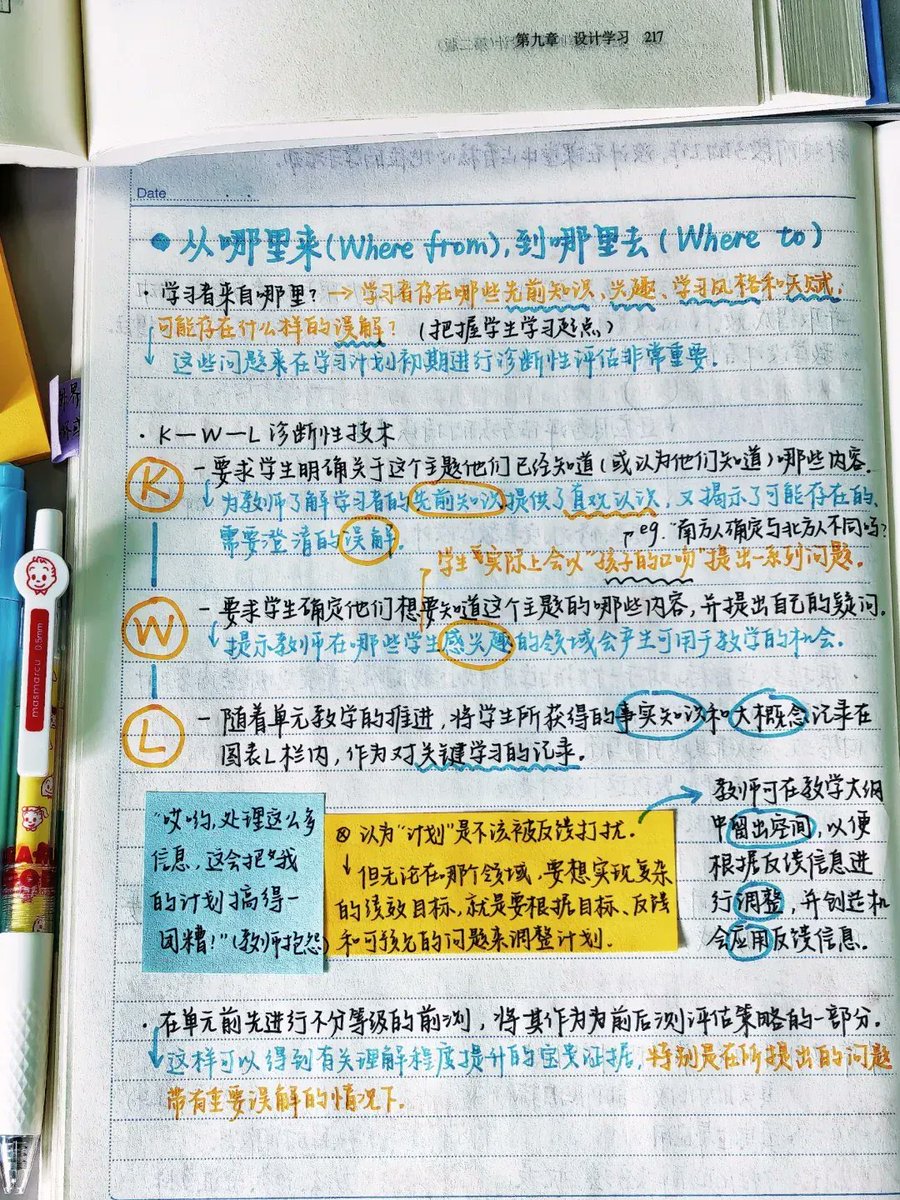 第九章 设计学习 217
Date
从哪里来(Where from),到哪里去(Where to)
· 学习者来自哪里?→学习者存在哪些先前知识、兴趣、学习风格和天赋,
可能存在什么样的误解?(把握学生学习起点)
这些问题来在学习计划初期进行诊断性评估非常重要.
· K—W—L诊断性技术
K
-要求学生明确关于这个主题他们已经知道(或认为他们知道)哪些内容.
为教师了解学习者的先前知识提供了直观认识,又揭示了可能存在的、
需要澄清的误解.
eg."南方人确定与北方人不同吗?
学生实际上会以"孩子的口吻"提出一系列问题.
W
-要求学生确定他们想要知道这个主题的哪些内容,并提出自己的疑问.
提示教师在哪些学生感兴趣的领域会产生可用于教学的机会.
L
-随着单元教学的推进,将学生所获得的事实知识和大概念记录在
图表L栏内,作为对关键学习的记录.
"哎哟,处理这么多
信息,这会把我
的计划搞得一
团糟!"(教师抱怨)
⊗ 认为"计划"是不该被反馈打扰.
但无论在哪个领域,要想实现复杂
的绩效目标,就是要根据目标、反馈
和可预见的问题来调整计划.
教师可在教学大纲
中留出空间,以便
根据反馈信息进
行调整,并创造机
会应用反馈信息.
· 在单元前先进行不分等级的前测,将其作为为前后测评估策略的一部分.
这样可以得到有关理解程度提升的宝贵证据,特别是在所提出的问题
带有重要误解的情况下.
masmarcu 0.5mm